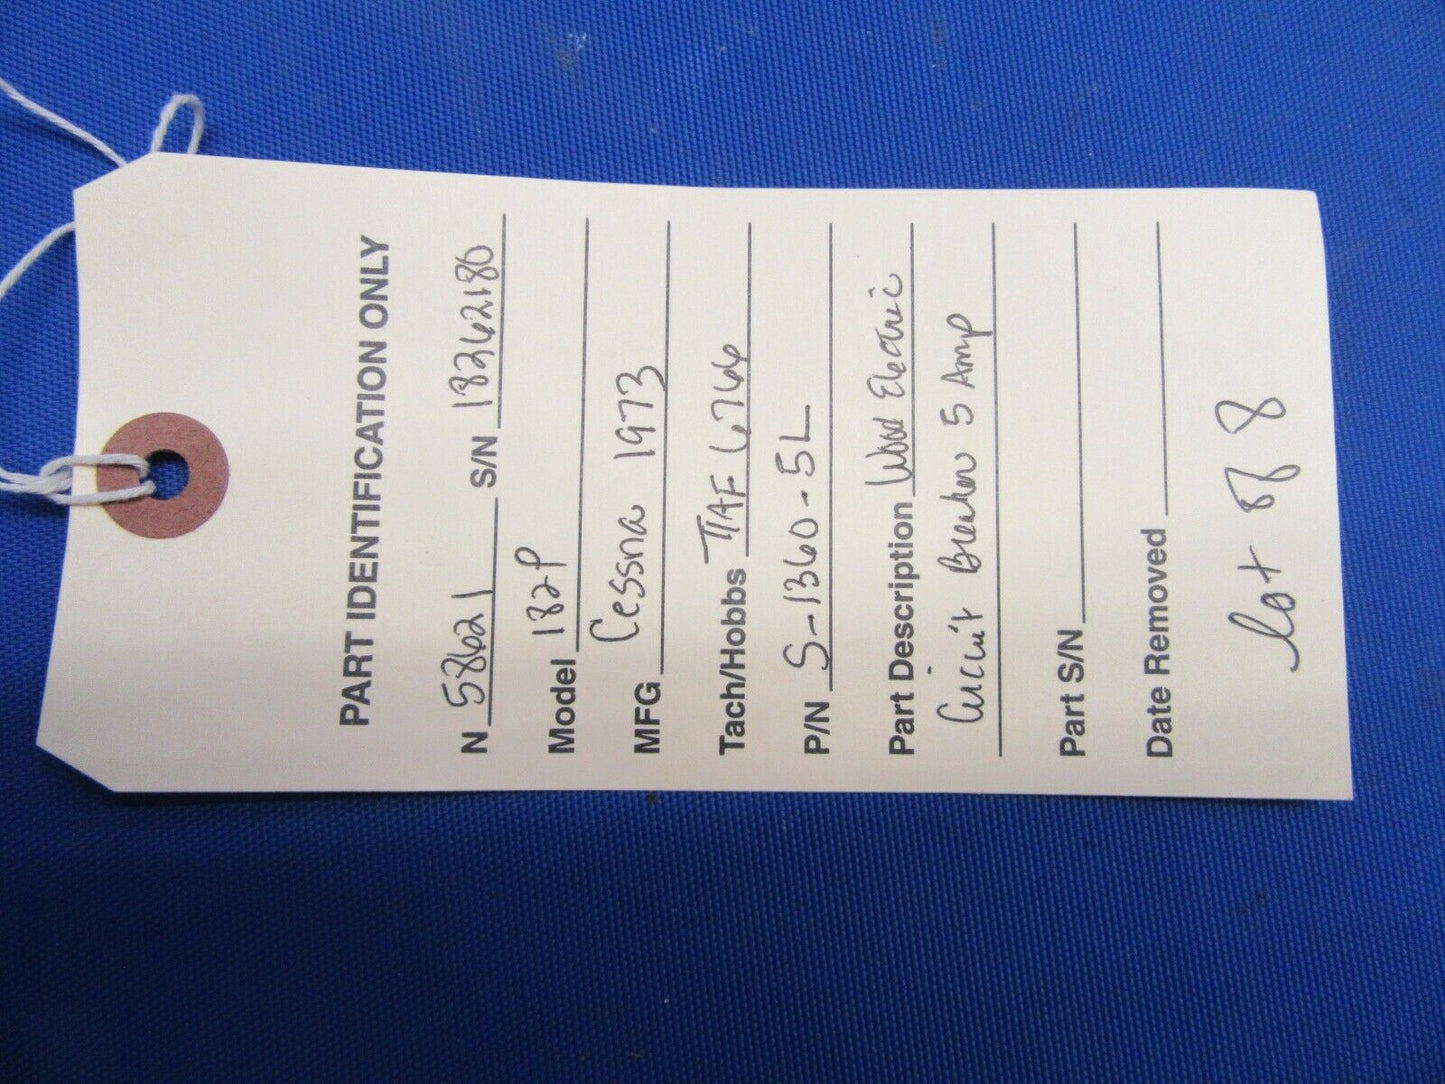 PART IDENTIFICATION ONLY
N 58621 S/N 18262180
Model 182P
MFG Cessna 1973
Tach/Hobbs TTAF 6766
P/N S-1360-5L
Part Description Wood Electric
Circuit Breaker 5 Amp
Part S/N
Date Removed
Lot of 8